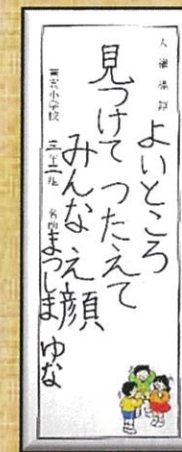 人権標語
よいところ
見つけて つたえて
みんな え顔
小学校 三年二組 名前 まつしま ゆな